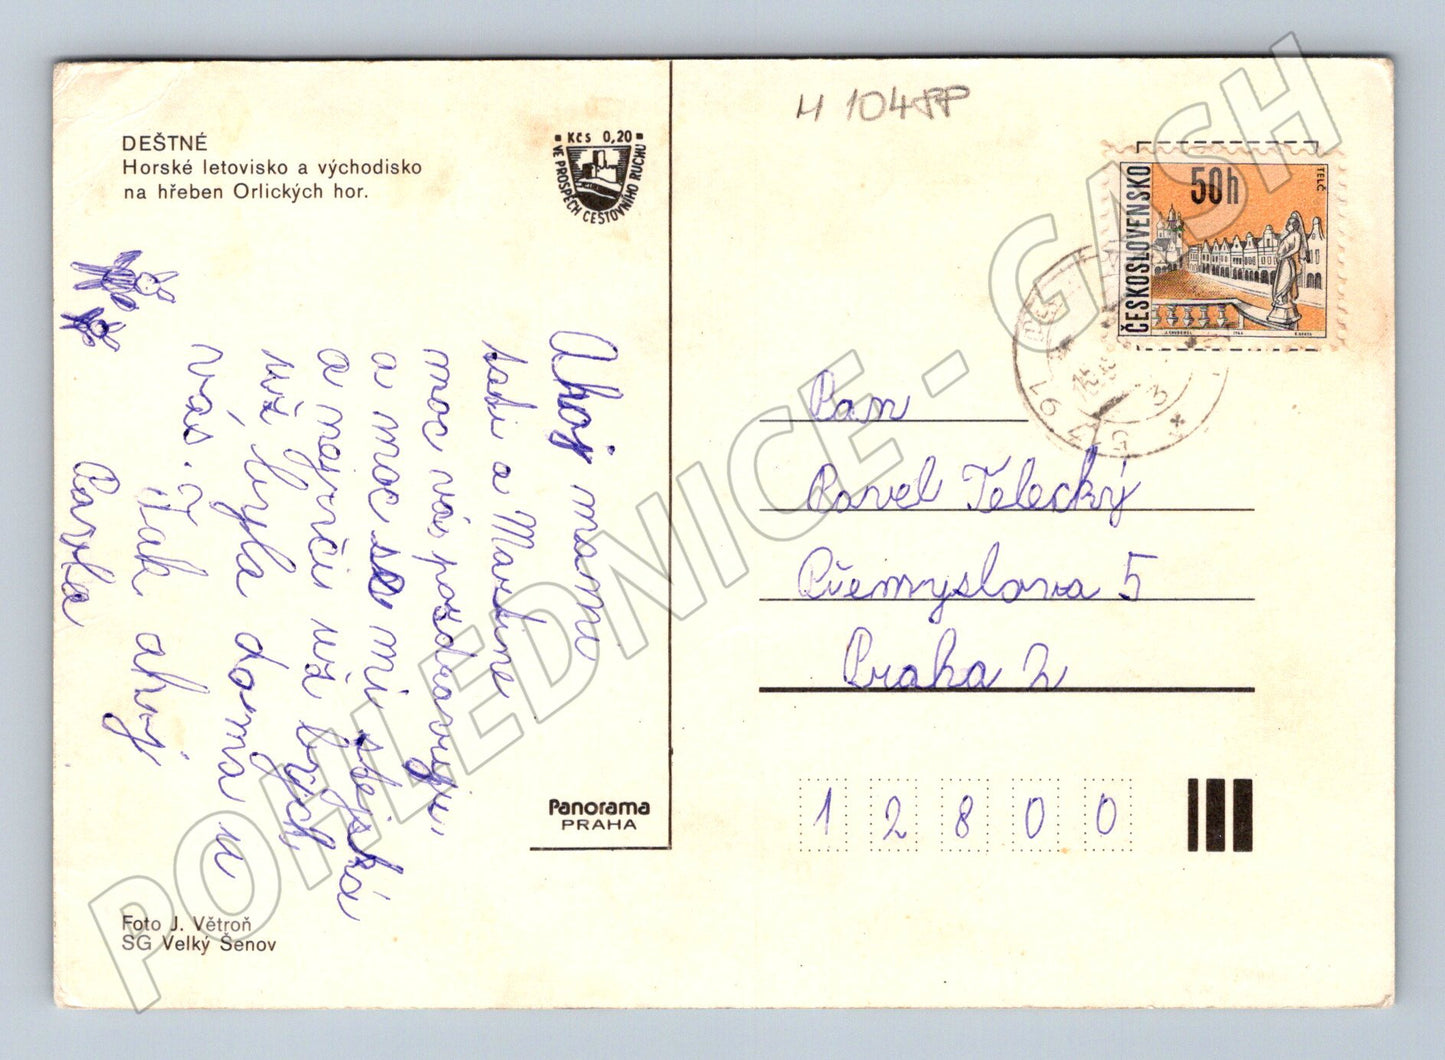 DEŠTNÉ
Horské letovisko a východisko
na hřeben Orlických hor.
Kčs 0,20
VE PROSPĚCH CESTOVNÍHO RUCHU
Ahoj mami
tati a Martine
moc vás pozdravuji
a moc se mi stejská
a nejvíc už bych
už byla doma u
vás. Tak ahoj
Pavla
Panorama
PRAHA
Foto J. Větroň
SG Velký Šenov
M 104PP
ČESKOSLOVENSKO
50h
TELČ
Pan
Pavel Telecký
Přemyslova 5
Praha 2
12800
POHLEDNICE - GASH